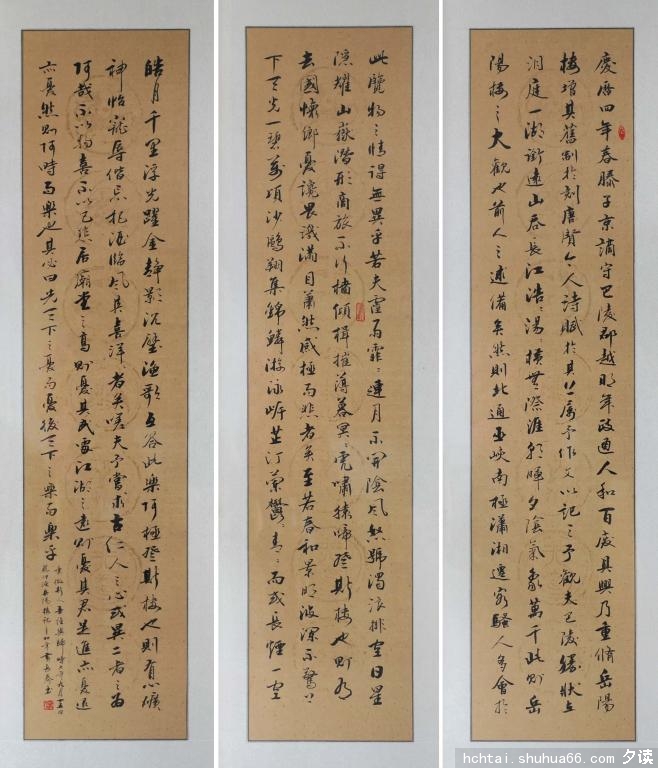 慶曆四年春滕子京謫守巴陵郡越明年政通人和百廢具興乃重脩岳陽
樓增其舊制於刻唐賢今人詩賦於其上屬予作文以記之予觀夫巴陵勝狀在
洞庭一湖銜遠山吞長江浩〻湯〻橫無際涯朝暉夕陰氣象萬千此則岳
陽樓之大觀也前人之述備矣然則北通巫峽南極瀟湘遷客騷人多會於
此覽物之情得無異乎若夫霪雨霏〻連月不開陰風怒號濁浪排空日星
隱耀山嶽潛形商旅不行檣傾楫摧薄暮冥〻虎嘯猿啼登斯樓也則有
去國懷鄉憂讒畏譏滿目蕭然感極而悲者矣至若春和景明波瀾不驚上
下天光一碧萬頃沙鷗翔集錦鱗游泳岸芷汀蘭鬱〻青〻而或長煙一空
皓月千里浮光躍金靜影沉璧漁歌互答此樂何極登斯樓也則有心曠
神怡寵辱偕忘把酒臨風其喜洋者矣嗟夫予嘗求古仁人之心或異二者之為
何哉不以物喜不以己悲居廟堂之高則憂其民處江湖之遠則憂其君是進亦憂退
亦憂然則何時而樂也其必曰先天下之憂而憂後天下之樂而樂乎
hchtai.shuhua66.com 夕读